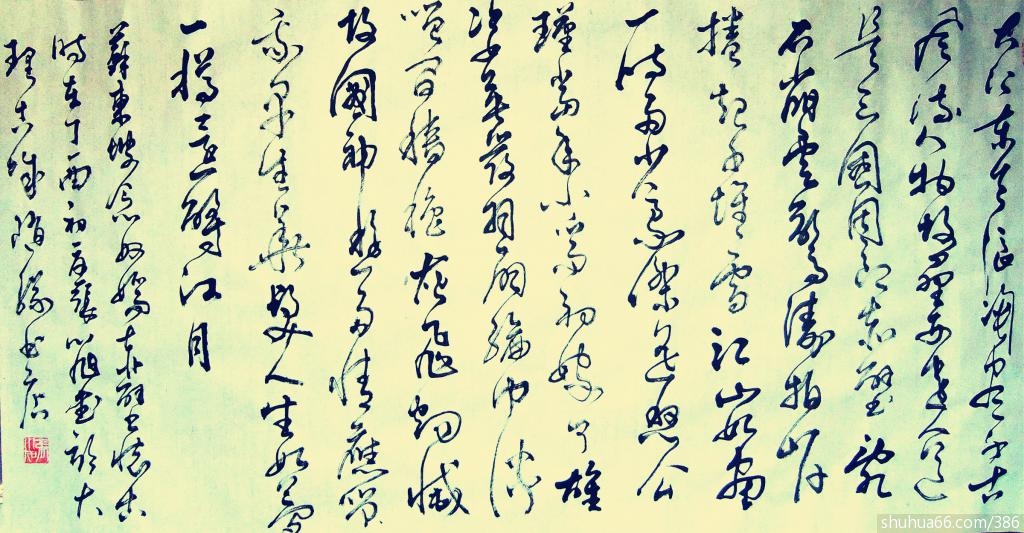 大江东去浪淘尽千古
风流人物故垒西边人道
是三國周郎赤壁亂
石崩雲驚涛拍岸
捲起千堆雪江山如画
一时多少豪傑遥想公
瑾当年小乔初嫁了雄
姿英發羽扇纶巾谈
笑间樯橹灰飞烟滅
故國神游多情應笑
我早生華髮人生如梦
一樽还酹江月
蘇東坡念奴嬌赤壁懷古
时在丁酉初夏
理古城随缘书店
shuhua66.com/386